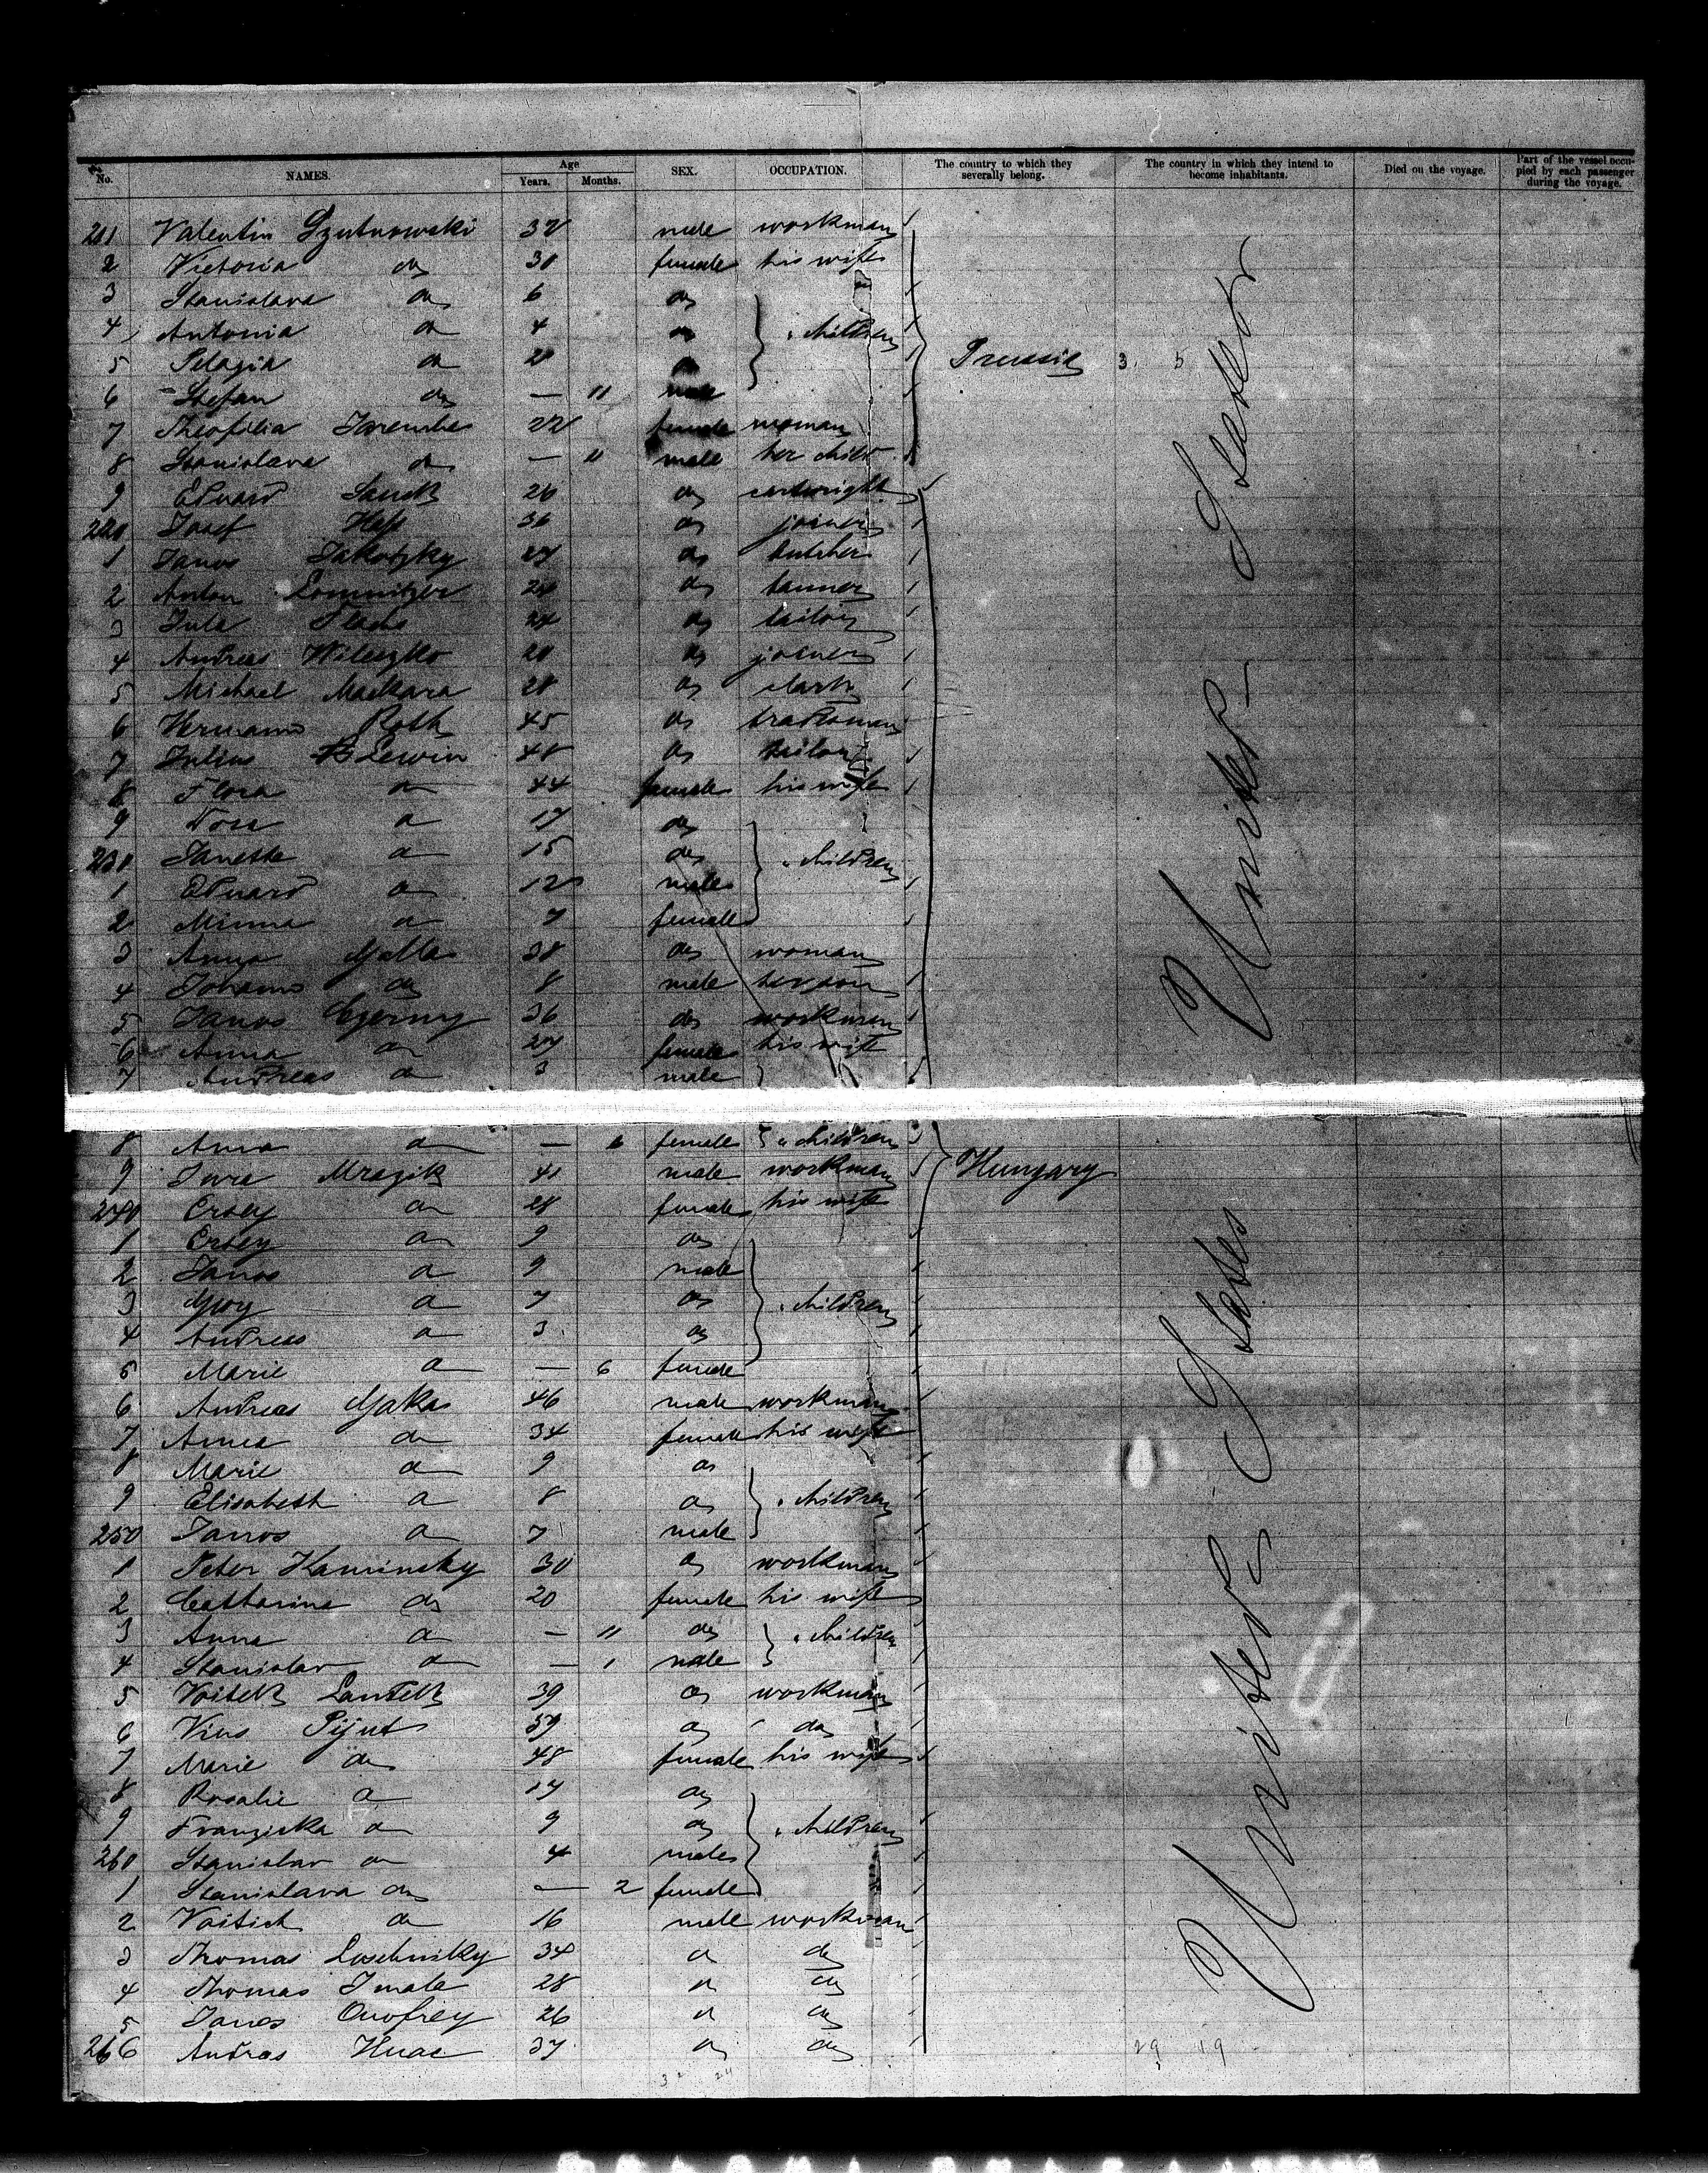 No. NAMES. Age Years. Months. SEX. OCCUPATION. The country to which they severally belong. The country in which they intend to become inhabitants. Died on the voyage. Part of the vessel occupied by each passenger during the voyage.
211 Valentin male workman
2 Victoria do 30 female his wife
3 Stanislava do 6 do
4 Antonia do 4 do children
5 Pelagia do do Prussia 3. 5
6 Stefan do — 11 male
7 Theofilia 22 female woman
8 Stanislava do — 11 male her child
9 Eduard 26 do cartwright
220 Josef Hess 36 do joiner
1 Janos 27 do butcher
2 Anton Lomnitzer do tanner
3 Jula 24 do tailor
4 Andreas do joiner
5 Michael Mackara 28 do clark
6 Hermann Roth 45 do tradesman
7 Julius Lewin 48 do tailor
8 Flora do 44 female his wife
9 do 17 do
230 Janette do 15 do children
1 Eduard do 12 male
2 Minna do 7 female
3 Anna 30 do woman
4 Johann do 8 male her son
5 Janos Czerny 36 do workman
6 Anna do 27 female his wife
7 Andreas do 3 male
8 Anna do — 6 female children
9 Jura Mrazik 41 male workman Hungary
240 Ersey do 28 female his wife
1 Ersey do 9 do
2 Janos do 9 male
3 do 7 do children
4 Andreas do 3 do
5 Marie do — 6 female
6 Andreas 46 male workman
7 Anna do 34 female his wife
8 Marie do 9 do
9 Elisabeth do 8 do children
250 Janos do 7 male
1 Peter Kaminsky 30 do workman
2 Catharina do 20 female his wife
3 Anna do — 11 do children
4 Stanislav do — 1 male
5 39 do workman
6 59 do do
7 Marie do 48 female his wife
8 Rosalie do 17 do
9 Franziska do 9 do children
260 Stanislav do 4 male
1 Stanislava do — 2 female
2 do 16 male workman
3 Thomas 34 do do
4 Thomas 28 do do
5 Janos Onofrey 26 do do
266 Andras 37 do do
United States
United States
29 19